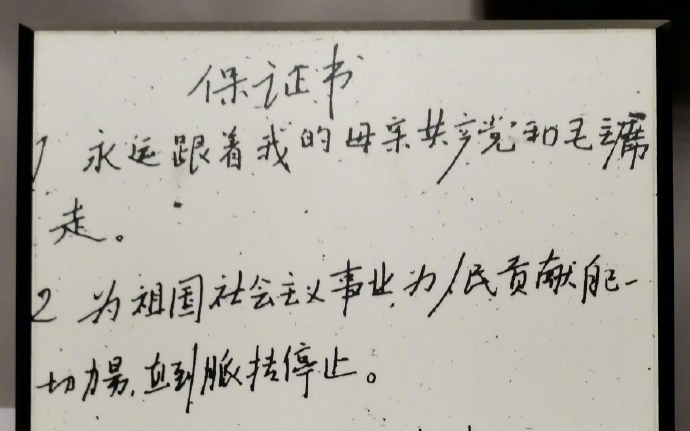 保证书
1 永远跟着我的母亲共产党和毛主席
走。
2 为祖国社会主义事业,为人民贡献自己一
切力量,直到脉搏停止。